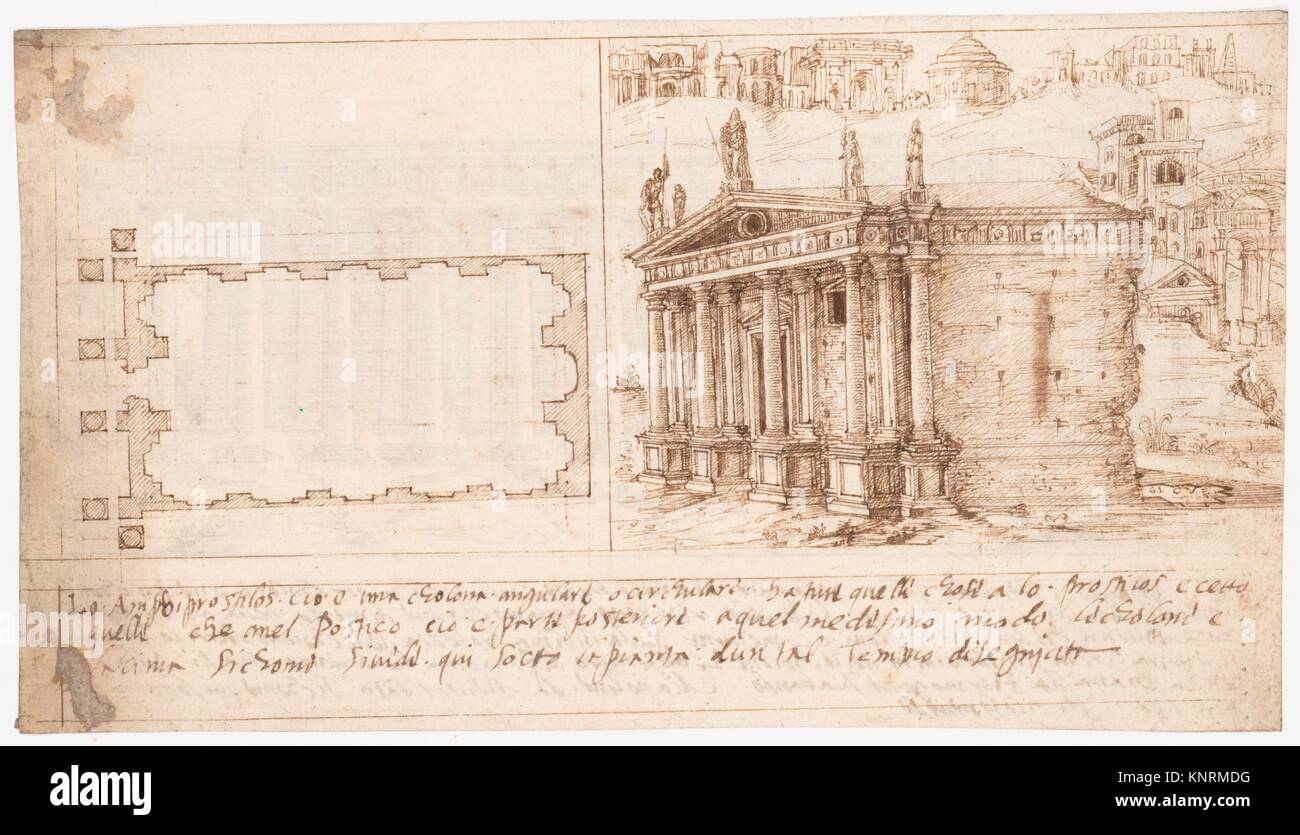 Lo Amphiprostilos cio e una cholona angulare o circhulare ha tute quelle chose a lo prostilos ecetto
quelle che anel Postico cio e parte posteriore a quel medesimo modo le cholone e
acima sichome si vide qui sotto la pianta dun tal Tempio disegniata
alamy
alamy
Image ID: KNRMDG
www.alamy.com